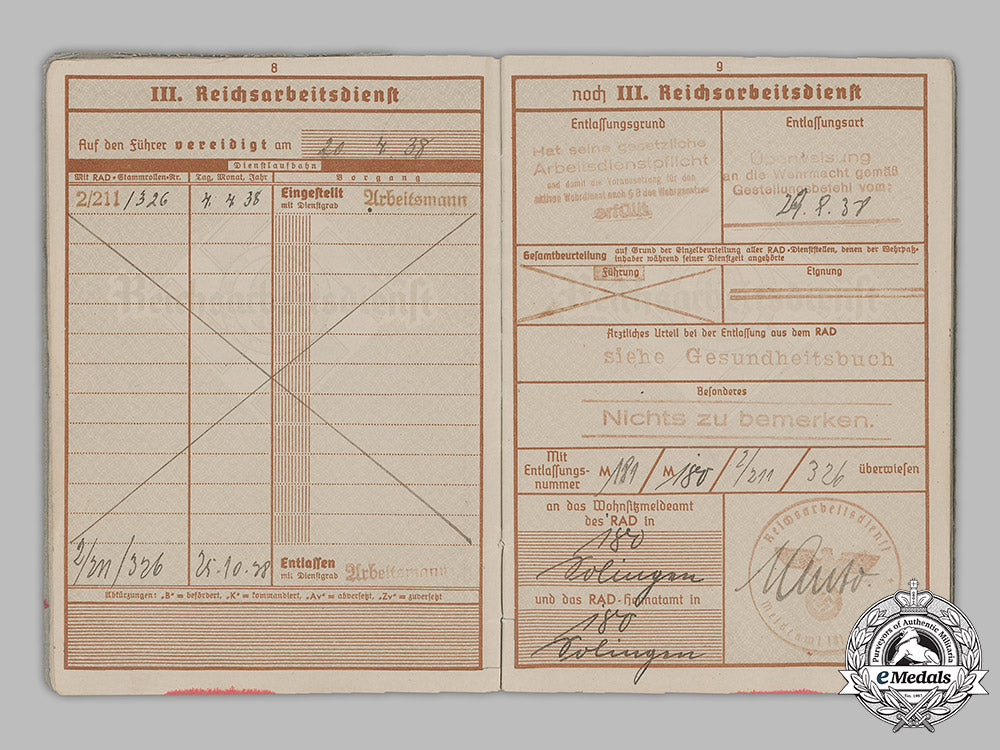 8
III. Reichsarbeitsdienst
Auf den Führer vereidigt am 20 4. 38
Dienstlaufbahn
Mit RAD-Stammrollen-Nr. Tag, Monat, Jahr Vorgang
2/211/326 4. 4 38 Eingestellt mit Dienstgrad Arbeitsmann
Reichsarbeitsdienst
2/211/326 25.10.38 Entlassen mit Dienstgrad Arbeitsmann
Abkürzungen: „B" = befördert, „K" = kommandiert, „Av" = abversetzt, „Zv" = zuversetzt
9
noch III. Reichsarbeitsdienst
Entlassungsgrund
Hat seine gesetzliche
Arbeitsdienstpflicht
und damit die Voraussetzung für den
aktiven Wehrdienst nach § 8 des Wehrgesetzes
erfüllt
Entlassungsart
Überweisung
an die Wehrmacht gemäß
Gestellungsbefehl vom:
29.8.38
Gesamtbeurteilung auf Grund der Einzelbeurteilung aller RAD-Dienststellen, denen der Wehrpaß-
inhaber während seiner Dienstzeit angehörte
Führung
Eignung
Reichsarbeitsdienst
Ärztliches Urteil bei der Entlassung aus dem RAD
siehe Gesundheitsbuch
Besonderes
Nichts zu bemerken.
Mit
Entlassungs-
nummer M 181 / M 180 / 2/211 / 326 überwiesen
an das Wohnsitzmeldeamt
des RAD in
180
Solingen
und das RAD-Heimatamt in
180
Solingen
Reichsarbeitsdienst
Meldeamt 181
Purveyors of Authentic Militaria
eMedals
Est. 1967